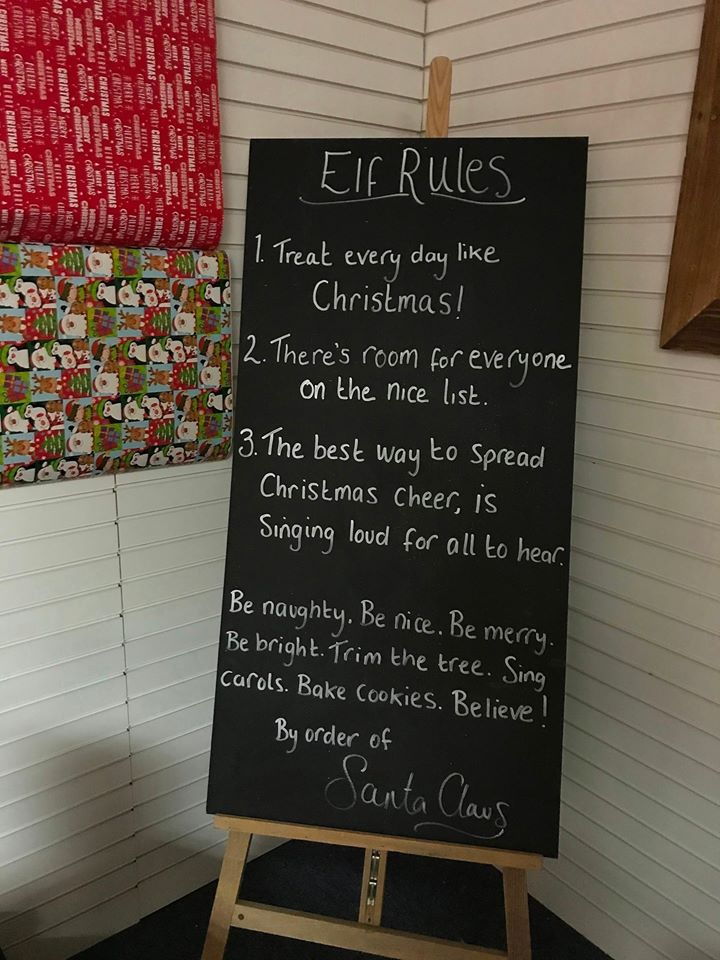 Elf Rules
1. Treat every day like
Christmas!
2. There's room for everyone
on the nice list.
3. The best way to spread
Christmas cheer, is
Singing loud for all to hear.
Be naughty. Be nice. Be merry.
Be bright. Trim the tree. Sing
carols. Bake cookies. Believe!
By order of
Santa Claus